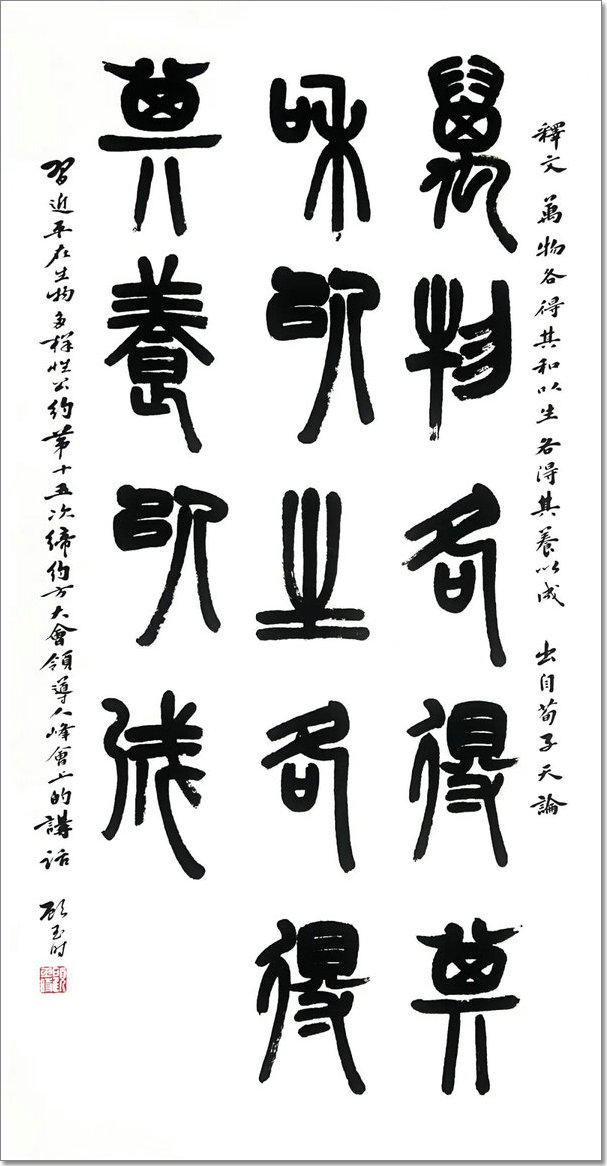 釋文 萬物各得其和以生各得其養以成 出自荀子天論
萬物各得其
和以生各得
其養以成
習近平在生物多樣性公約第十五次締約方大會領導人峰會上的講話 顧玉时